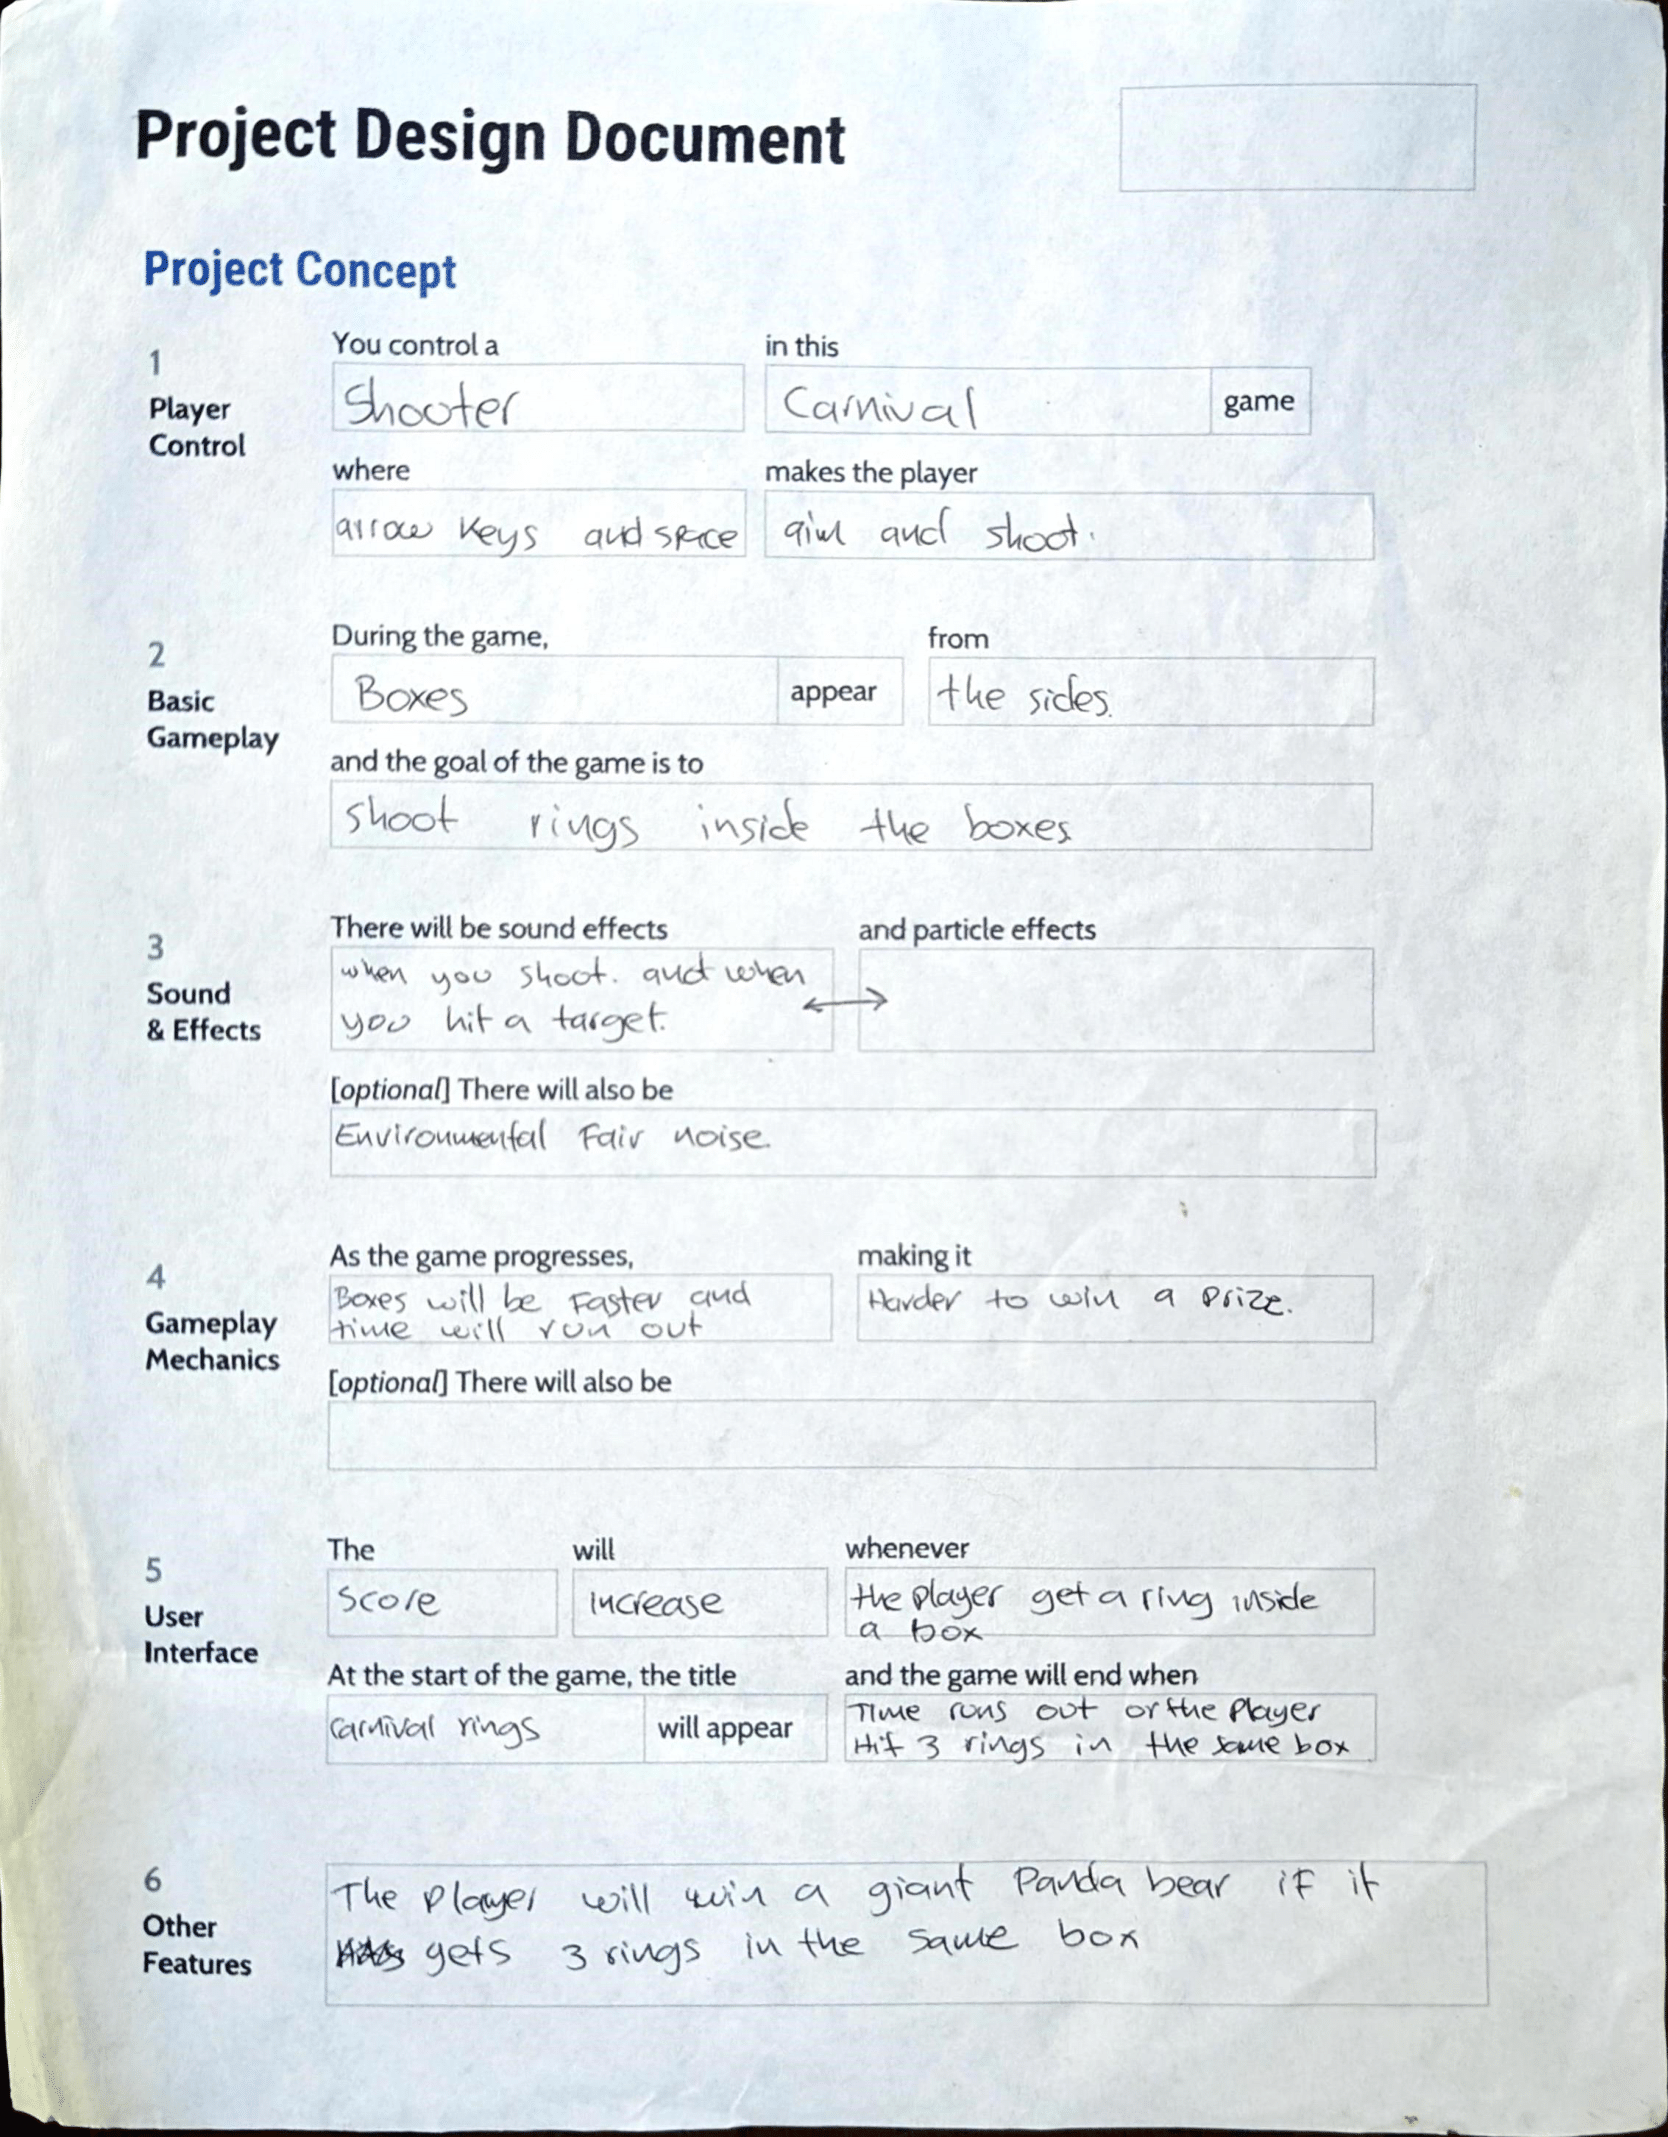 Project Design Document
Project Concept
1
Player
Control
You control a
Shooter
in this
Carnival
game
where
arrow keys and space
makes the player
aim and shoot.
2
Basic
Gameplay
During the game,
Boxes
appear
from
the sides.
and the goal of the game is to
shoot rings inside the boxes
3
Sound
& Effects
There will be sound effects
when you shoot. and when
you hit a target.
and particle effects
[optional] There will also be
Environmental Fair noise.
4
Gameplay
Mechanics
As the game progresses,
Boxes will be Faster and
time will run out
making it
Harder to win a prize.
[optional] There will also be
5
User
Interface
The
Score
will
increase
whenever
the player get a ring inside
a box
At the start of the game, the title
Carnival rings
will appear
and the game will end when
Time runs out or the Player
Hit 3 rings in the same box
6
Other
Features
The player will win a giant Panda bear if it
gets 3 rings in the same box